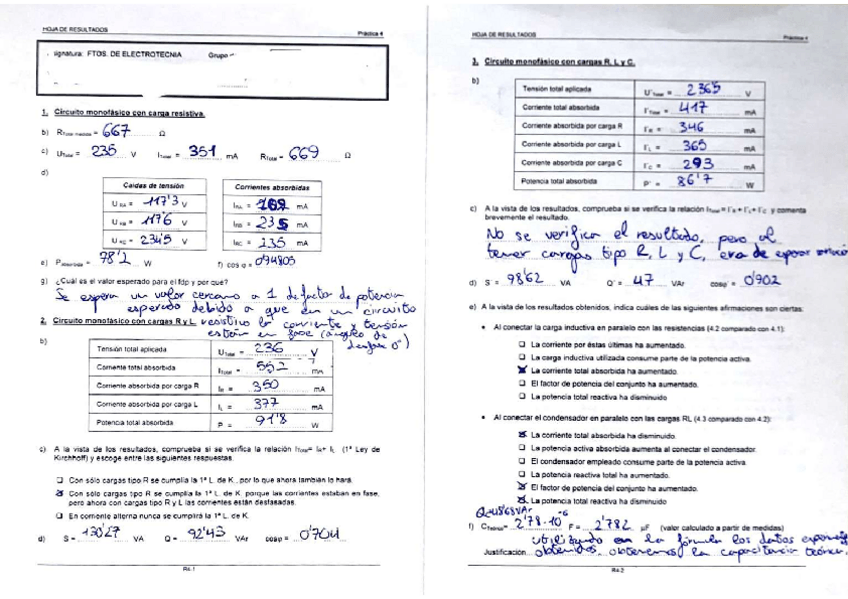 HOJA DE RESULTADOS Práctica 4
signatura: FTOS. DE ELECTROTECNIA Grupo
1. Circuito monofásico con carga resistiva.
b) RTotal medida = 667 Ω
c) UTotal = 235 V ITotal = 351 mA RTotal = 669 Ω
d)
Caídas de tensión Corrientes absorbidas
U RA = 117'3 V IRA = mA
U RB = 117'6 V IRB = 235 mA
U RC = 234'5 V IRC = 235 mA
e) PAbsorbida = 98'2 W f) cos φ = 0'94805
g) ¿Cuál es el valor esperado para el fdp y por qué?
Se espera un valor cercano a 1 de factor de potencia
esperado debido a que en un circuito
resistivo la corriente y tensión
están en fase (ángulo de
desfase 0°)
2. Circuito monofásico con cargas R y L
b)
Tensión total aplicada UTotal = 236 V
Corriente total absorbida ITotal = 552 mA
Corriente absorbida por carga R IR = 350 mA
Corriente absorbida por carga L IL = 377 mA
Potencia total absorbida P = 91'8 W
c) A la vista de los resultados, comprueba si se verifica la relación ITotal= IR+ IL (1ª Ley de
Kirchhoff) y escoge entre las siguientes respuestas.
Con sólo cargas tipo R se cumplía la 1ª L. de K., por lo que ahora también lo hará.
Con sólo cargas tipo R se cumplía la 1ª L. de K. porque las corrientes estaban en fase,
pero ahora con cargas tipo R y L las corrientes están desfasadas.
En corriente alterna nunca se cumplirá la 1ª L. de K.
d) S = 130'27 VA Q = 92'43 VAr cosφ = 0'7041
R4.1
HOJA DE RESULTADOS Práctica 4
3. Circuito monofásico con cargas R, L y C.
b)
Tensión total aplicada U'Total = 2365 V
Corriente total absorbida I'Total = 417 mA
Corriente absorbida por carga R I'R = 346 mA
Corriente absorbida por carga L I'L = 365 mA
Corriente absorbida por carga C I'C = 293 mA
Potencia total absorbida P' = 86'7 W
c) A la vista de los resultados, comprueba si se verifica la relación ITotal= I'R + I'L+ I'C y comenta
brevemente el resultado.
No se verifica el resultado, pero al
tener cargas tipo R, L y C, era de esperar
d) S = 98'62 VA Q' = 47 VAr cosφ' = 0'902
e) A la vista de los resultados obtenidos, indica cuáles de las siguientes afirmaciones son ciertas:
• Al conectar la carga inductiva en paralelo con las resistencias (4.2 comparado con 4.1):
La corriente por éstas últimas ha aumentado.
La carga inductiva utilizada consume parte de la potencia activa.
La corriente total absorbida ha aumentado.
El factor de potencia del conjunto ha aumentado.
La potencia total reactiva ha disminuido
• Al conectar el condensador en paralelo con las cargas RL (4.3 comparado con 4.2):
La corriente total absorbida ha disminuido.
La potencia activa absorbida aumenta al conectar el condensador.
El condensador empleado consume parte de la potencia activa.
La potencia reactiva total ha aumentado.
El factor de potencia del conjunto ha aumentado.
La potencia total reactiva ha disminuido
f) CTeórica = 2'78·10⁻⁶ F = 2'782 µF (valor calculado a partir de medidas)
Justificación utilizando en la fórmula los datos
obtenidos, obtenemos la capacitancia teórica.
R4.2